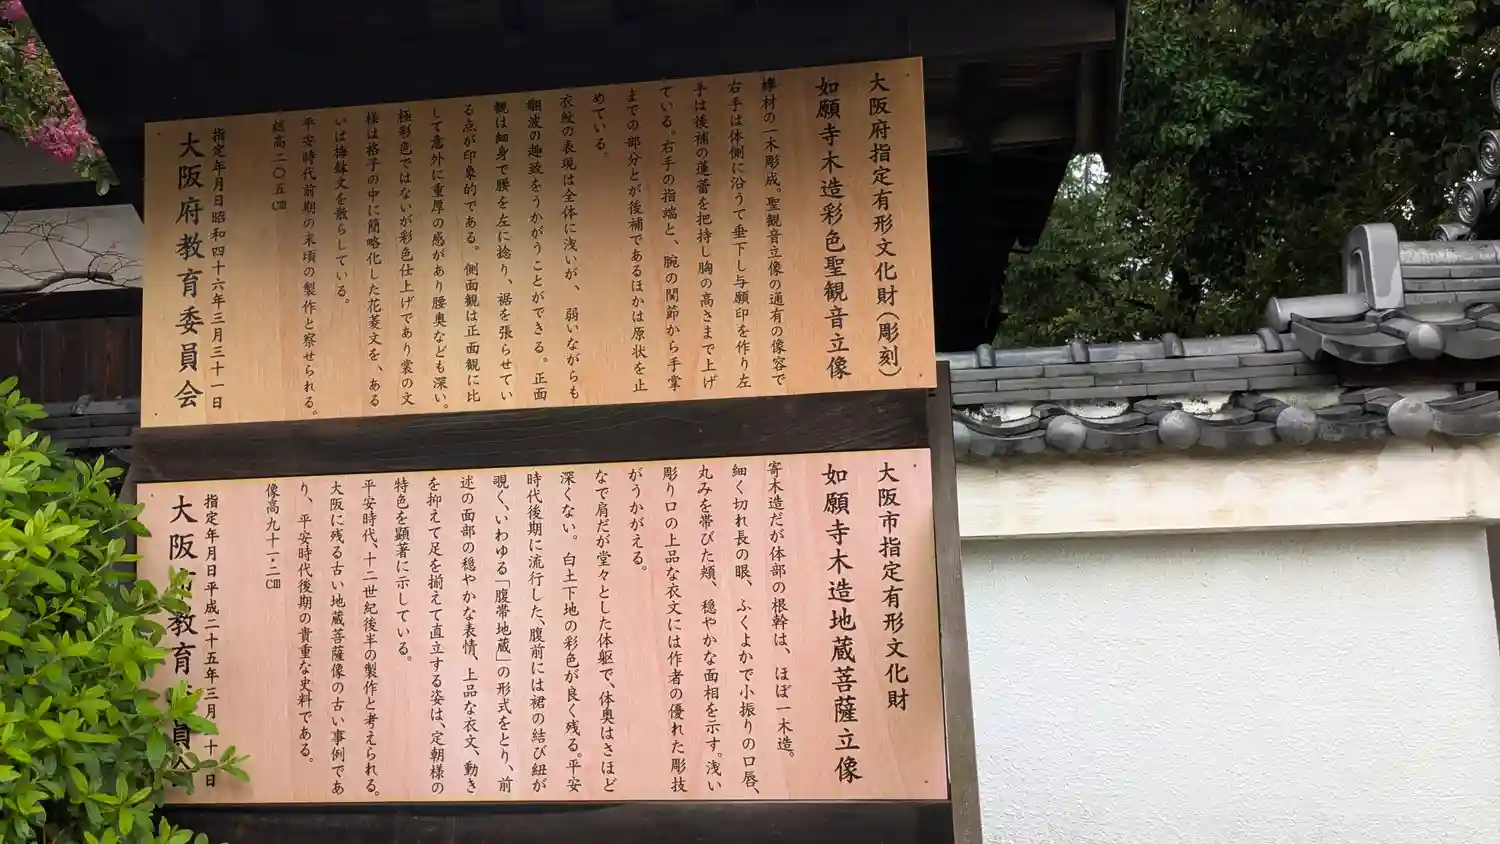 大阪府指定有形文化財(彫刻)
如願寺木造彩色聖観音立像
欅材の一木彫成。聖観音立像の通有の像容で
右手は体側に沿うて垂下し与願印を作り左
手は後補の蓮蕾を把持し胸の高さまで上げ
ている。右手の指端と、腕の関節から手掌
までの部分とが後補であるほかは原状を止
めている。
衣紋の表現は全体に浅いが、弱いながらも
翻波の趣致をうかがうことができる。正面
観は細身で腰を左に捻り、裾を張らせてい
る点が印象的である。側面観は正面観に比
して意外に重厚の感があり腰奥なども深い。
極彩色ではないが彩色仕上げであり裳の文
様は格子の中に簡略化した花菱文を、ある
いは梅鉢文を散らしている。
平安時代前期の末頃の製作と察せられる。
総高二〇五㎝
指定年月日昭和四十六年三月三十一日
大阪府教育委員会
大阪市指定有形文化財
如願寺木造地蔵菩薩立像
寄木造だが体部の根幹は、ほぼ一木造。
細く切れ長の眼、ふくよかで小振りの口唇、
丸みを帯びた頬、穏やかな面相を示す。浅い
彫り口の上品な衣文には作者の優れた彫技
がうかがえる。
なで肩だが堂々とした体躯で、体奥はさほど
深くない。白土下地の彩色が良く残る。平安
時代後期に流行した、腹前には裙の結び紐が
覗く、いわゆる「腹帯地蔵」の形式をとり、前
述の面部の穏やかな表情、上品な衣文、動き
を抑えて足を揃えて直立する姿は、定朝様の
特色を顕著に示している。
平安時代、十二世紀後半の製作と考えられる。
大阪に残る古い地蔵菩薩像の古い事例であ
り、平安時代後期の貴重な史料である。
像高九十一・二㎝
指定年月日平成二十五年三月 十日
大阪市教育 員会